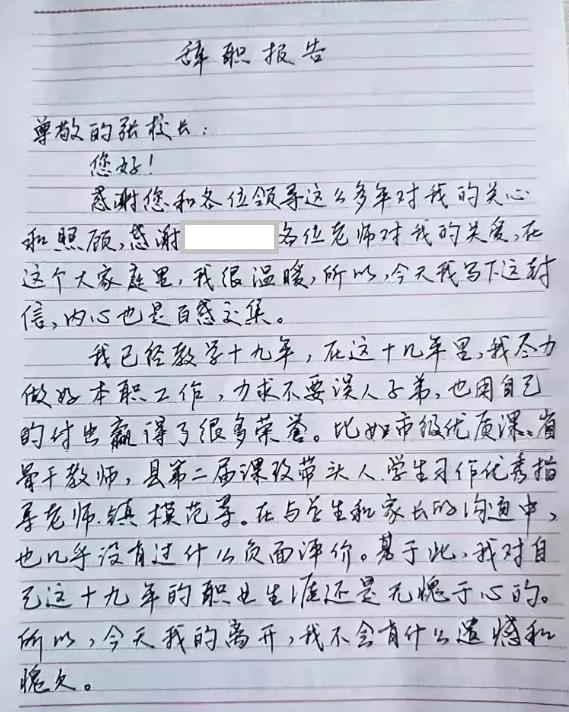 辞职报告
尊敬的张校长：
您好！
感谢您和各位领导这么多年对我的关心
和照顾，感谢各位老师对我的关爱，在
这个大家庭里，我很温暖，所以，今天我写下这封
信，内心也是百感交集。
我已经教学十九年，在这十几年里，我尽力
做好本职工作，力求不要误人子弟，也用自己
的付出赢得了很多荣誉。比如市级优质课、省
骨干教师，县第二届课改带头人，学生习作优秀指
导老师，镇模范等。在与学生和家长的沟通中，
也几乎没有过什么负面评价。基于此，我对自
己这十九年的职业生涯还是无愧于心的。
所以，今天我的离开，我不会有什么遗憾和
愧欠。